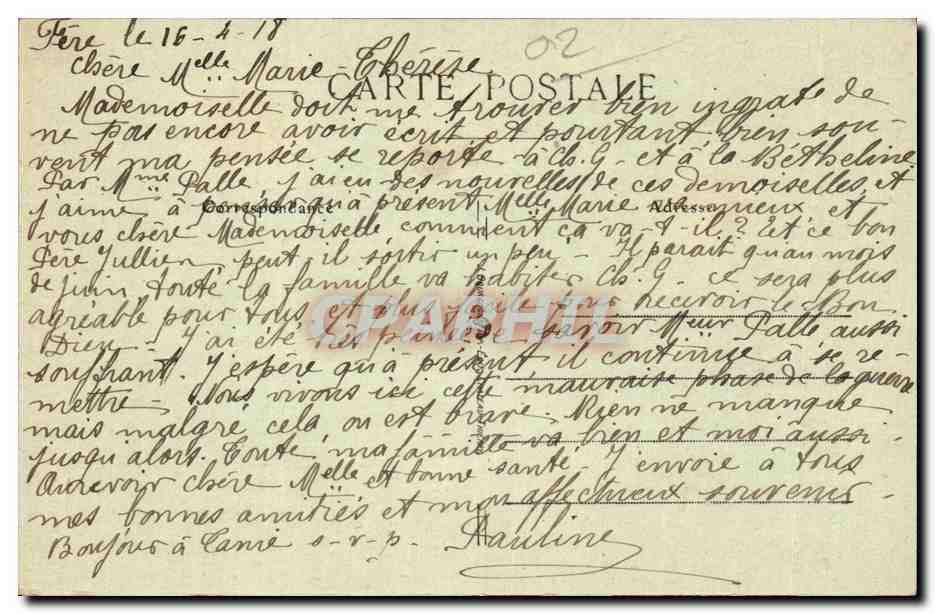 Fère le 16-4-18
02
chère Melle Marie-Thérèse
CARTE POSTALE
Mademoiselle doit me trouver bien ingrate de
ne pas encore avoir écrit et pourtant bien sou-
vent ma pensée se reporte à Ch. G. et à la Bétheline
Par Mme Palle, j'ai eu des nouvelles de ces demoiselles, et
j'aime à qu'à présent Melle Marie va mieux et
Correspondance
Adresse
vous chère Mademoiselle comment ça va-t-il? Et ce bon
Père Jullien peut il sortir un peu - Il parait qu'au mois
de juin toute la famille va habiter Ch. G. ce sera plus
agréable pour tous et plus pour recevoir le Bon
Dieu - J'ai été très peinée de savoir Mr Palle aussi
souffrant. J'espère qu'à présent il continue à se re-
mettre - Nous vivons ici cette mauvaise phase de la guerre
mais malgré cela, on est brave. Rien ne manque
jusqu'alors. Toute ma famille va bien et moi aussi -
Aurevoir chère Melle et bonne santé. J'envoie à tous
mes bonnes amitiés et mon affectueux souvenir -
Bonjour à Tanie s-v-p. Pauline
CPARHII